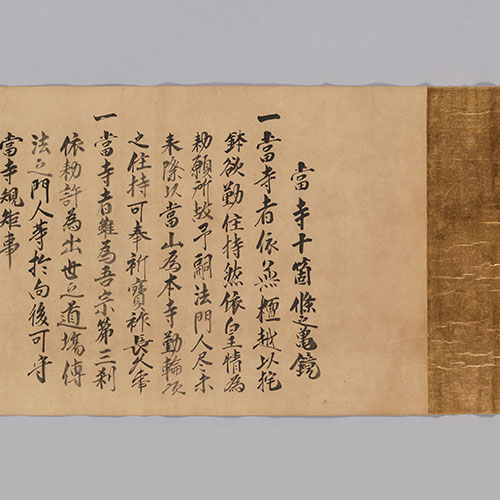 當寺十箇條之亀鏡
一當寺者依無檀越以托
鉢欲勤住持然依皇情為
勅願所故予嗣法門人尽未
来際以當山為本寺勤輪次
之住持可奉祈寳祚長久事
一當寺者雖為吾宗第三刹
依勅許為出世之道場傳
法之門人等於向後可守
當寺規矩事